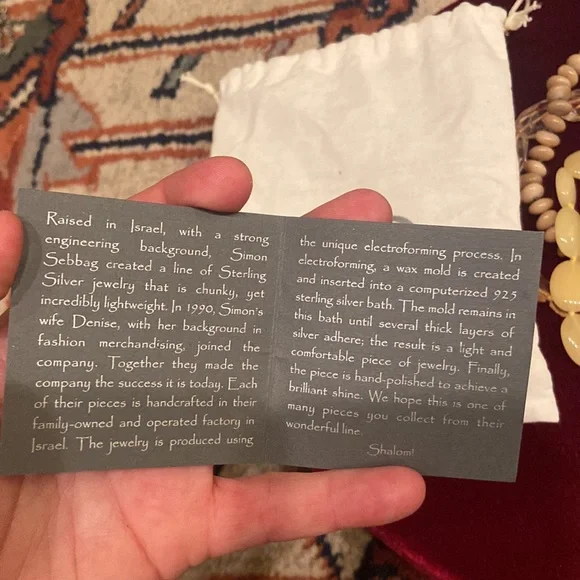 Raised in Israel, with a strong
engineering background, Simon
Sebbag created a line of Sterling
Silver jewelry that is chunky, yet
incredibly lightweight. In 1990, Simon's
wife Denise, with her background in
fashion merchandising, joined the
company. Together they made the
company the success it is today. Each
of their pieces is handcrafted in their
family-owned and operated factory in
Israel. The jewelry is produced using
the unique electroforming process. In
electroforming, a wax mold is created
and inserted into a computerized 925
sterling silver bath. The mold remains in
this bath until several thick layers of
silver adhere; the result is a light and
comfortable piece of jewelry. Finally,
the piece is hand-polished to achieve a
brilliant shine. We hope this is one of
many pieces you collect from their
wonderful line.
Shalom!